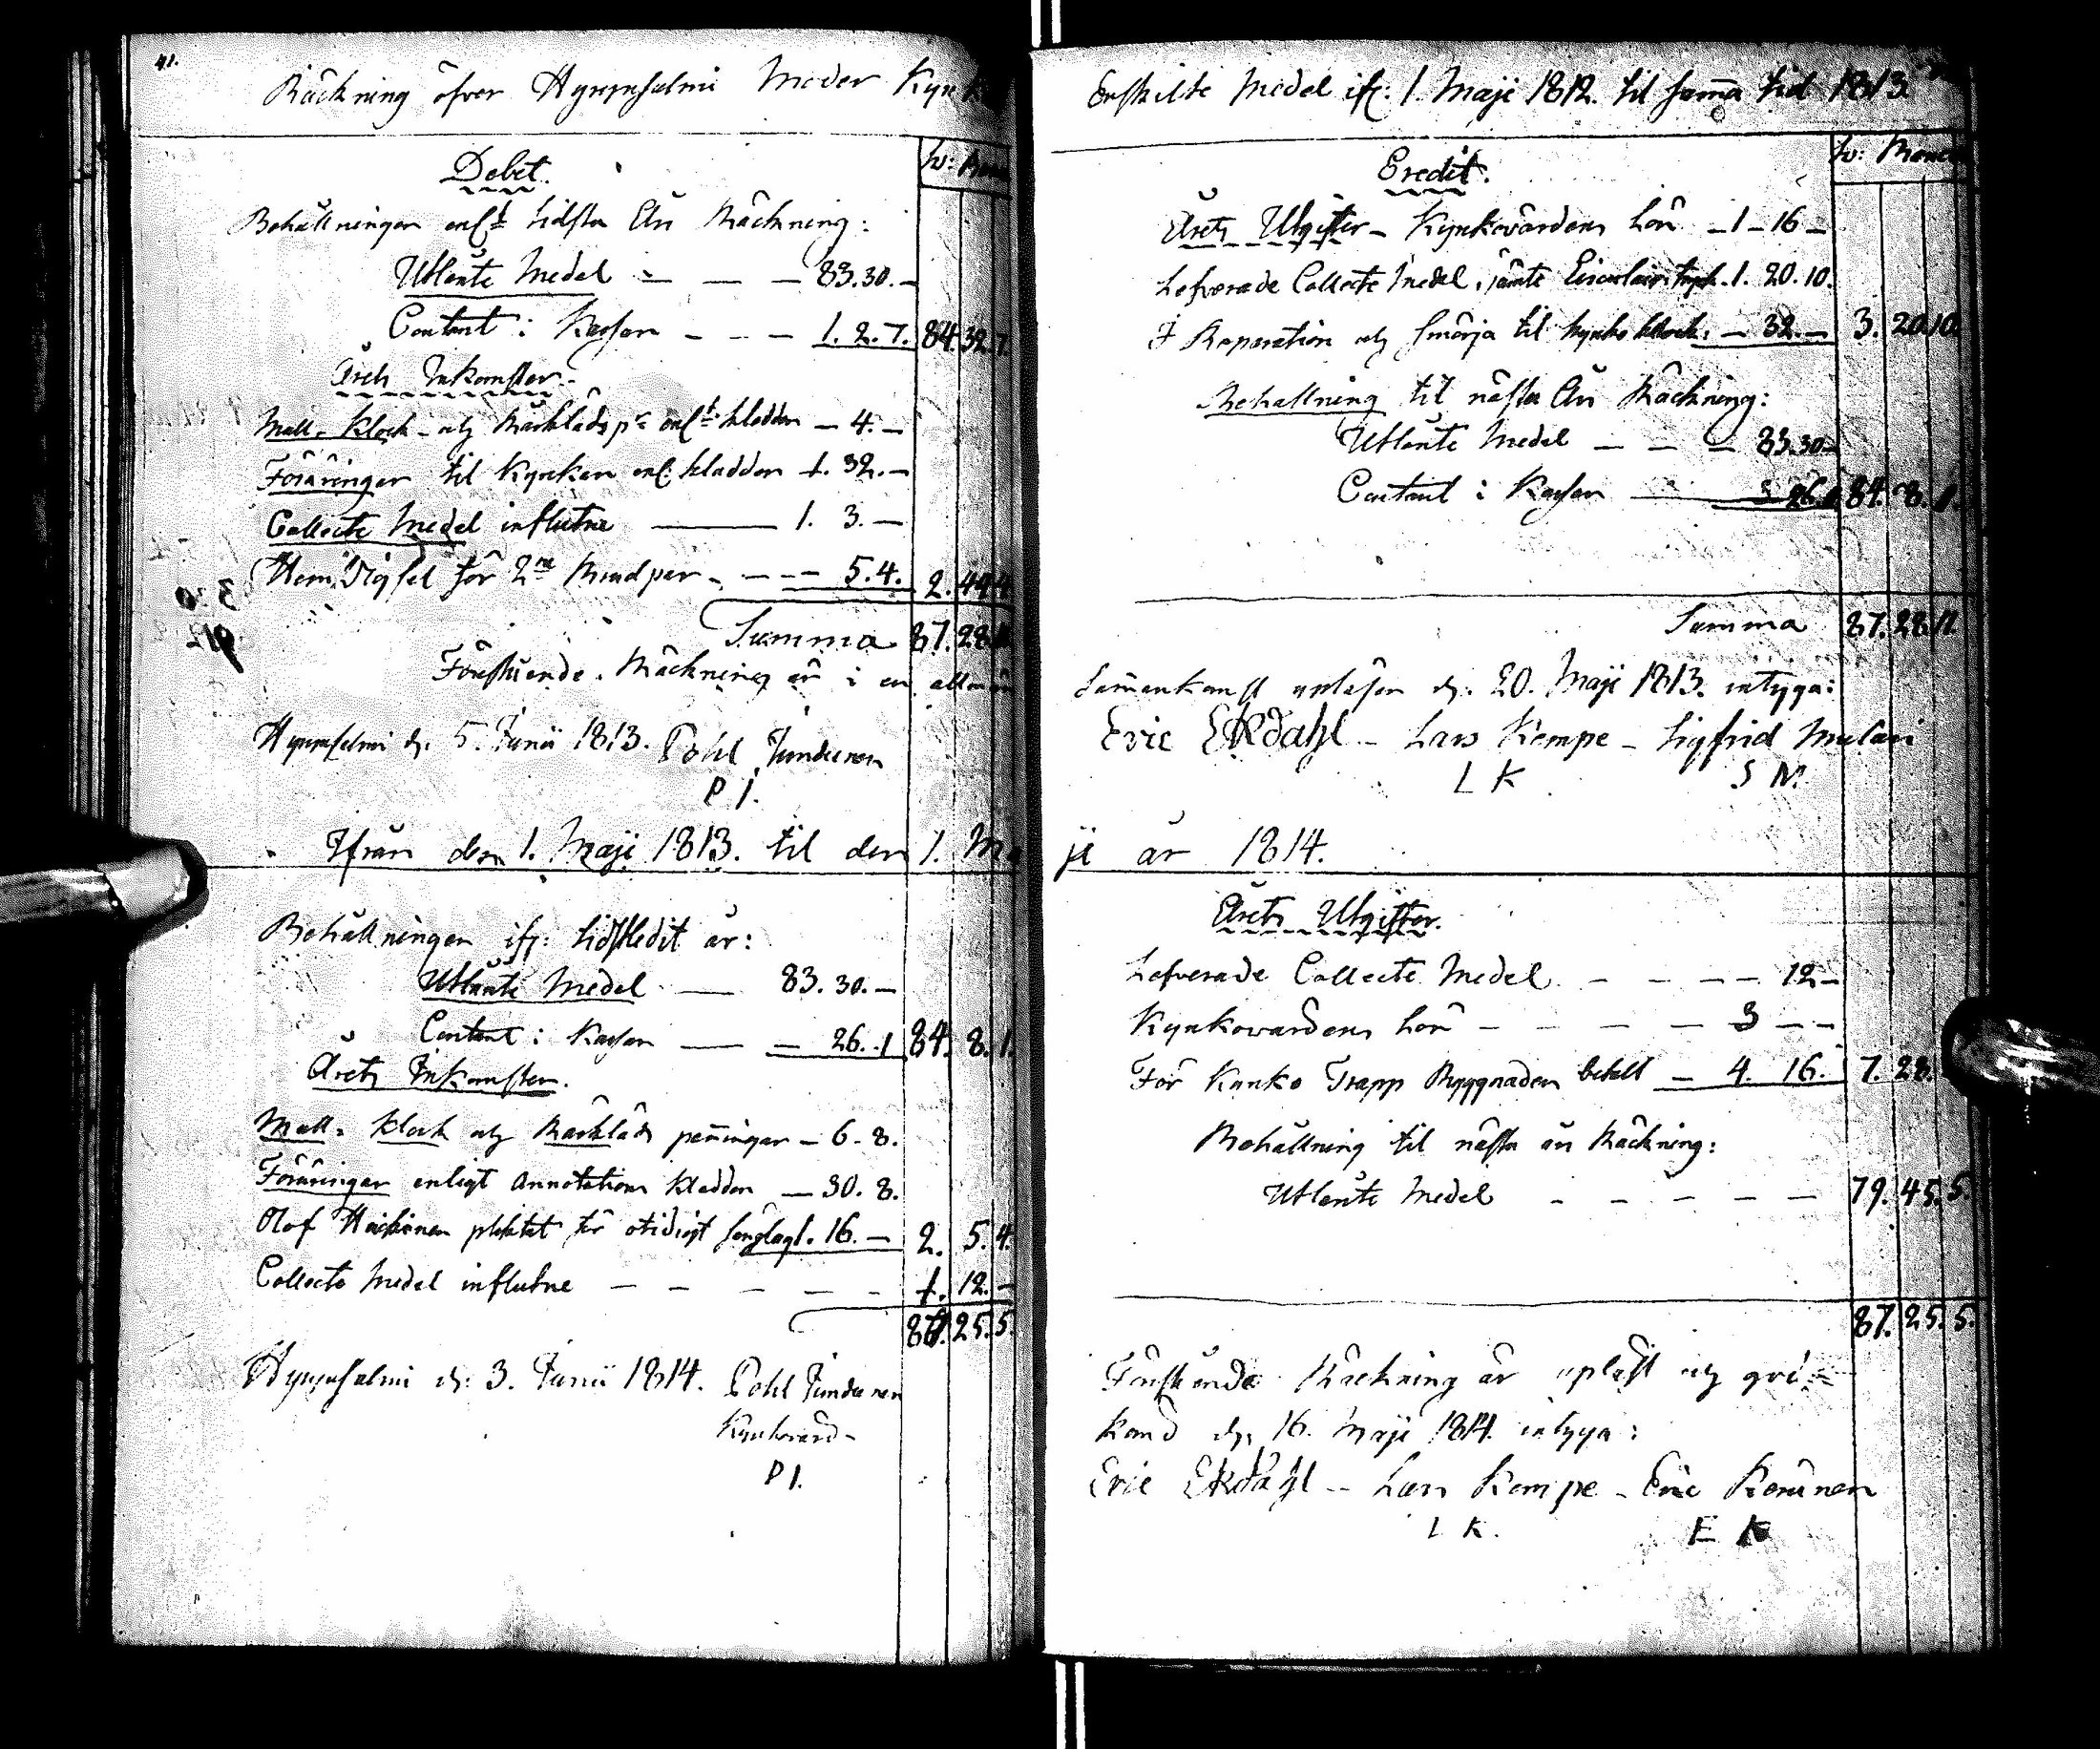 41.
Räckning öfver Hyrynsalmi Moder Kyrko
Debet.
Behållningen enl:t sidsta Års Räckning:
Utlånte Medel — — — 83. 30. —
Contant i Kassan — — — 1. 2. 7. 84. 32. 7.
Årets Inkomster.
Mull-, Klock- och Bårkläds p:r enl:t kladden — 4. —
Föräringar til Kyrkan enl: kladden 1. 32. —
Collecte Medel influtne — 1. 3. —
för 2:ne — — — 5. 4. 2. 44. 4.
Summa 87. 28. 11
Förestående Räckning är i en allmän
Hyrynsalmi d. 5. Junii 1813. Pohl Jundunen
P J.
Ifrån den 1. Maji 1813. til den 1. Ma
Behållningen ifr: sidstledit år:
Utlånte Medel — 83. 30. —
Contant i Kassan — — 26. 1 84. 8. 1.
Årets Inkomster.
Mull-, Klock och Bårkläds penningar — 6. 8.
Föräringar enligt Annotations kladden — 30. 8.
Olof pliktat för otidigt sänglag. 16. — 2. 5. 4.
Collecte Medel influtne — — — — — 1. 12. —
87. 25. 5.
Hyrynsalmi d: 3. Junii 1814. Pohl Jundunen
Kyrkovärd
P J.
Enskilte Medel ifr: 1. Maji 1812. til samma tid 1813
Credit.
Årets Utgifter — Kyrkovärdens lön — 1 — 16 —
Lefverade Collecte Medel, jämte Circulair tryk. 1. 20. 10.
I Reparation och smörja til kyrko klock: — 32. — 3. 20. 10.
Behållning til nästa Års Räckning:
Utlånte Medel — — — 83. 30 —
Contant i Kassan — 26. 1 84. 8. 1.
Summa 87. 28. 11
Samankomst upläsen d. 20. Maji 1813. intyga:
Eric Ekdahl — Lars Kempe — Sigfrid Mulari
L K S M.
ji år 1814.
Årets Utgifter.
Lefverade Collecte Medel — — — — 12 —
Kyrkovärdens lön — — — — 3 — —
För Kyrko Trapp Byggnaden betalt — 4. 16. 7. 28.
Behållning til nästa års Räckning:
Utlånte Medel — — — — — 79. 45. 5.
87. 25. 5.
Förestående Räckning är upläst och
känd d. 16. Maji 1814. intyga:
Eric Ekdahl — Lars Kempe — Eric Keränen
L K. E K